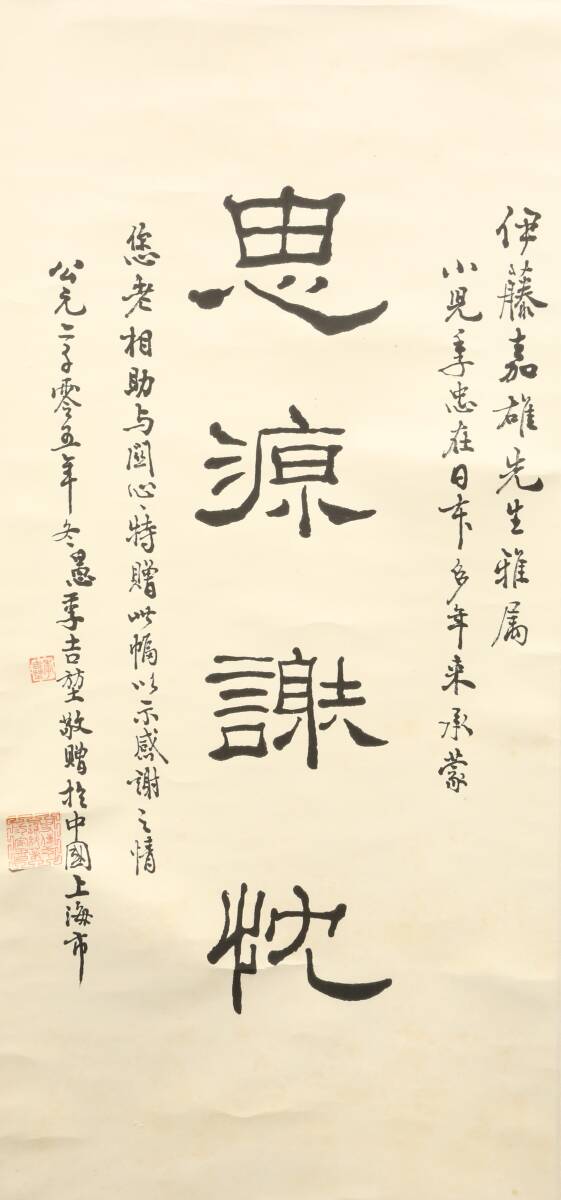 伊藤嘉雄先生雅属
小児季忠在日本多年来承蒙
思源謝忱
您老相助与関心、特贈此幅以示感謝之情
公元二千零五年冬愚季吉堃敬贈於中國上海市